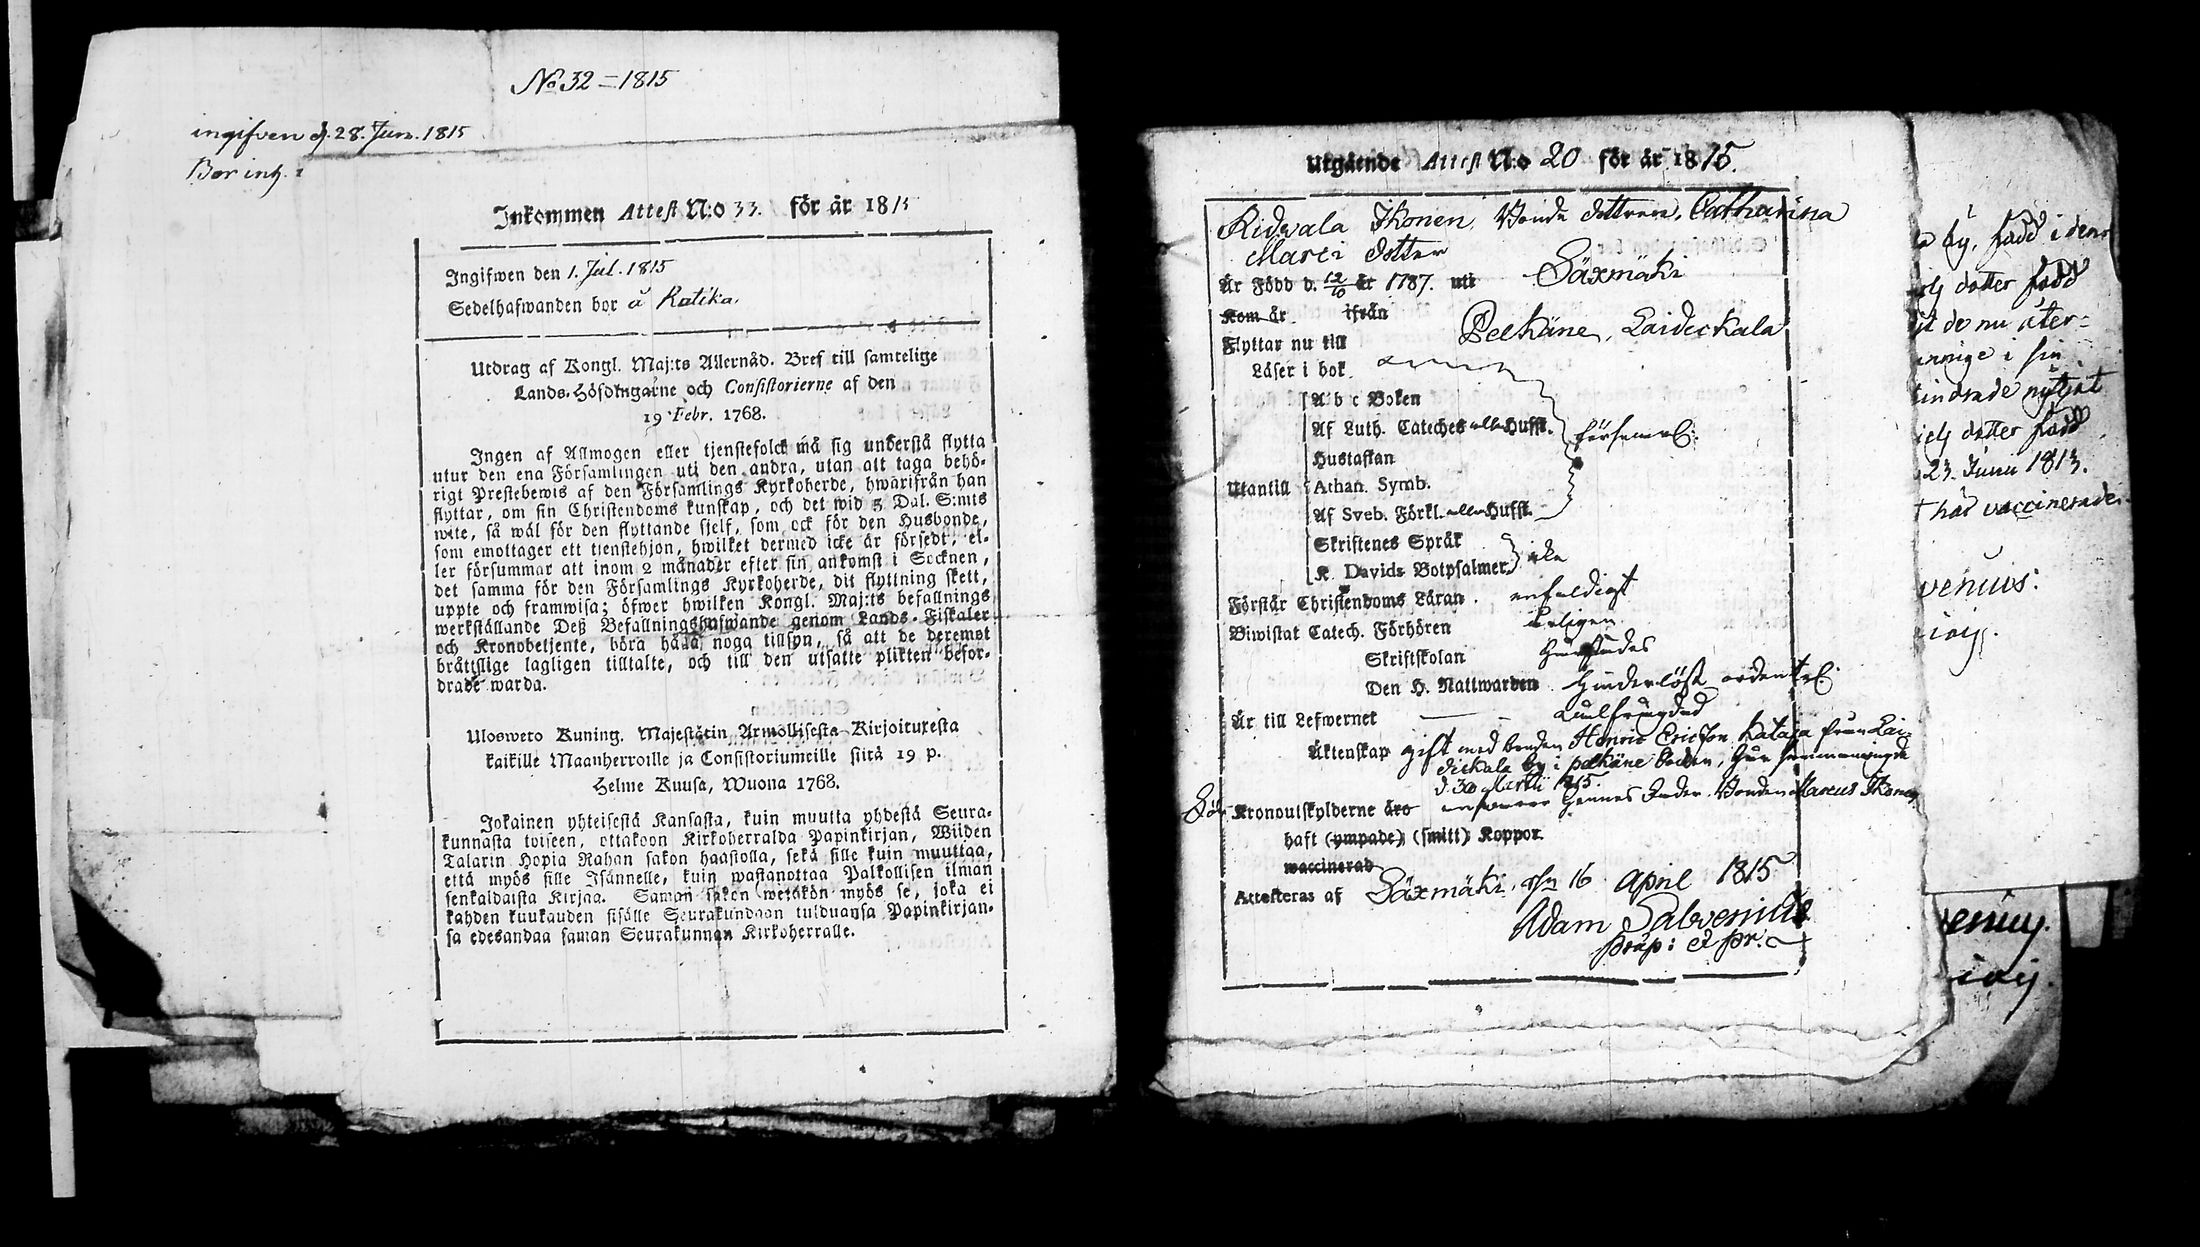 No 32 = 1815
ingifven d. 28. Jun. 1815
Bor
Inkommen Attest N:o 33. för år 1815
Ingifwen den 1. Jul. 1815
Sedelhafwanden bor å Ratika.
Utdrag af Kongl. Maj:ts Allernåd. Bref till samtelige
Lands-Höfdingarne och Consistorierne af den
19 Febr. 1768.
Ingen af Allmogen eller tjenstefolck må sig understå flytta
utur den ena Församlingen uti den andra, utan att taga behö-
rigt Prestebewis af den Församlings Kyrkoherde, hwarifrån han
flyttar, om sin Christendoms kunskap, och det wid 5 Dal. S:mts
wite, så wäl för den flyttande sjelf, som ock för den Husbonde,
som emottager ett tienstehjon, hwilket dermed icke är försedt, el-
ler försummar att inom 2 månader efter sin ankomst i Socknen,
det samma för den Församlings Kyrkoherde, dit flyttning skett,
uppte och framwisa; öfwer hwilken Kongl. Maj:ts befallnings
werkställande Deß Befallningshafwande genom Lands-Fiskaler
och Kronobetjente, böra hålla noga tillsyn, så att de deremot
bråttslige lagligen tilltalte, och till den utsatte plikten befor-
drade warda.
Ulosweto Kuning. Majestätin Armollisesta Kirjoituxesta
kaikille Maanherroille ja Consistoriumeille siitä 19 p.
Helme Kuusa, Wuona 1768.
Jokainen yhteisestä Kansasta, kuin muutta yhdestä Seura-
kunnasta toiseen, ottakoon Kirkoherralda Papinkirjan, Wiiden
Talarin Hopia Rahan sakon haastolla, sekä sille kuin muuttaa,
että myös sille Isännelle, kuin wastanottaa Palkollisen ilman
senkaldaista Kirjaa. Saman sakon wetäkön myös se, joka ei
kahden kuukauden sisälle Seurakundaan tulduansa Papinkirjan-
sa edesandaa saman Seurakunnan Kirkoherralle.
Utgående Attest N:o 20 för år 1815.
Ridvala Ikonen Bonde dottren, Catharina
Marci dotter
Är Född d. 12/10 år 1787. uti Säxmäki
Kom år ifrån
Flyttar nu till Pelkäne, Laideckala
Läser i bok
A b c Boken
Af Luth. Cateches eller Hufst.
Hustaflan
Utantill Athan. Symb.
Af Sveb. Förkl. eller Hufst.
Skriftenes Språk
K. Davids Botpsalmer icke
Förstår Christendoms Läran enfaldigt
Biwistat Catech. Förhören årligen
Skriftskolan
Den H. Nattwarden
Är till Lefwernet
Äktenskap gift med bonden Henric Ericsson Kataja från Lai-
dickala by i Pelkäne Socken,
d. 30 Martii 1815.
Kronoutskylderne äro Bonden Marcus Ikonen
haft (ympade) (smitt) Koppor.
waccinerad
Attesteras af Säxmäki. 16 April 1815
Adam Salvenius
præp: & pr.
by, född i den
dotter född
de nu åter-
i sin
dotter född
23. Junii 1813.
här vaccinerade.
venius: